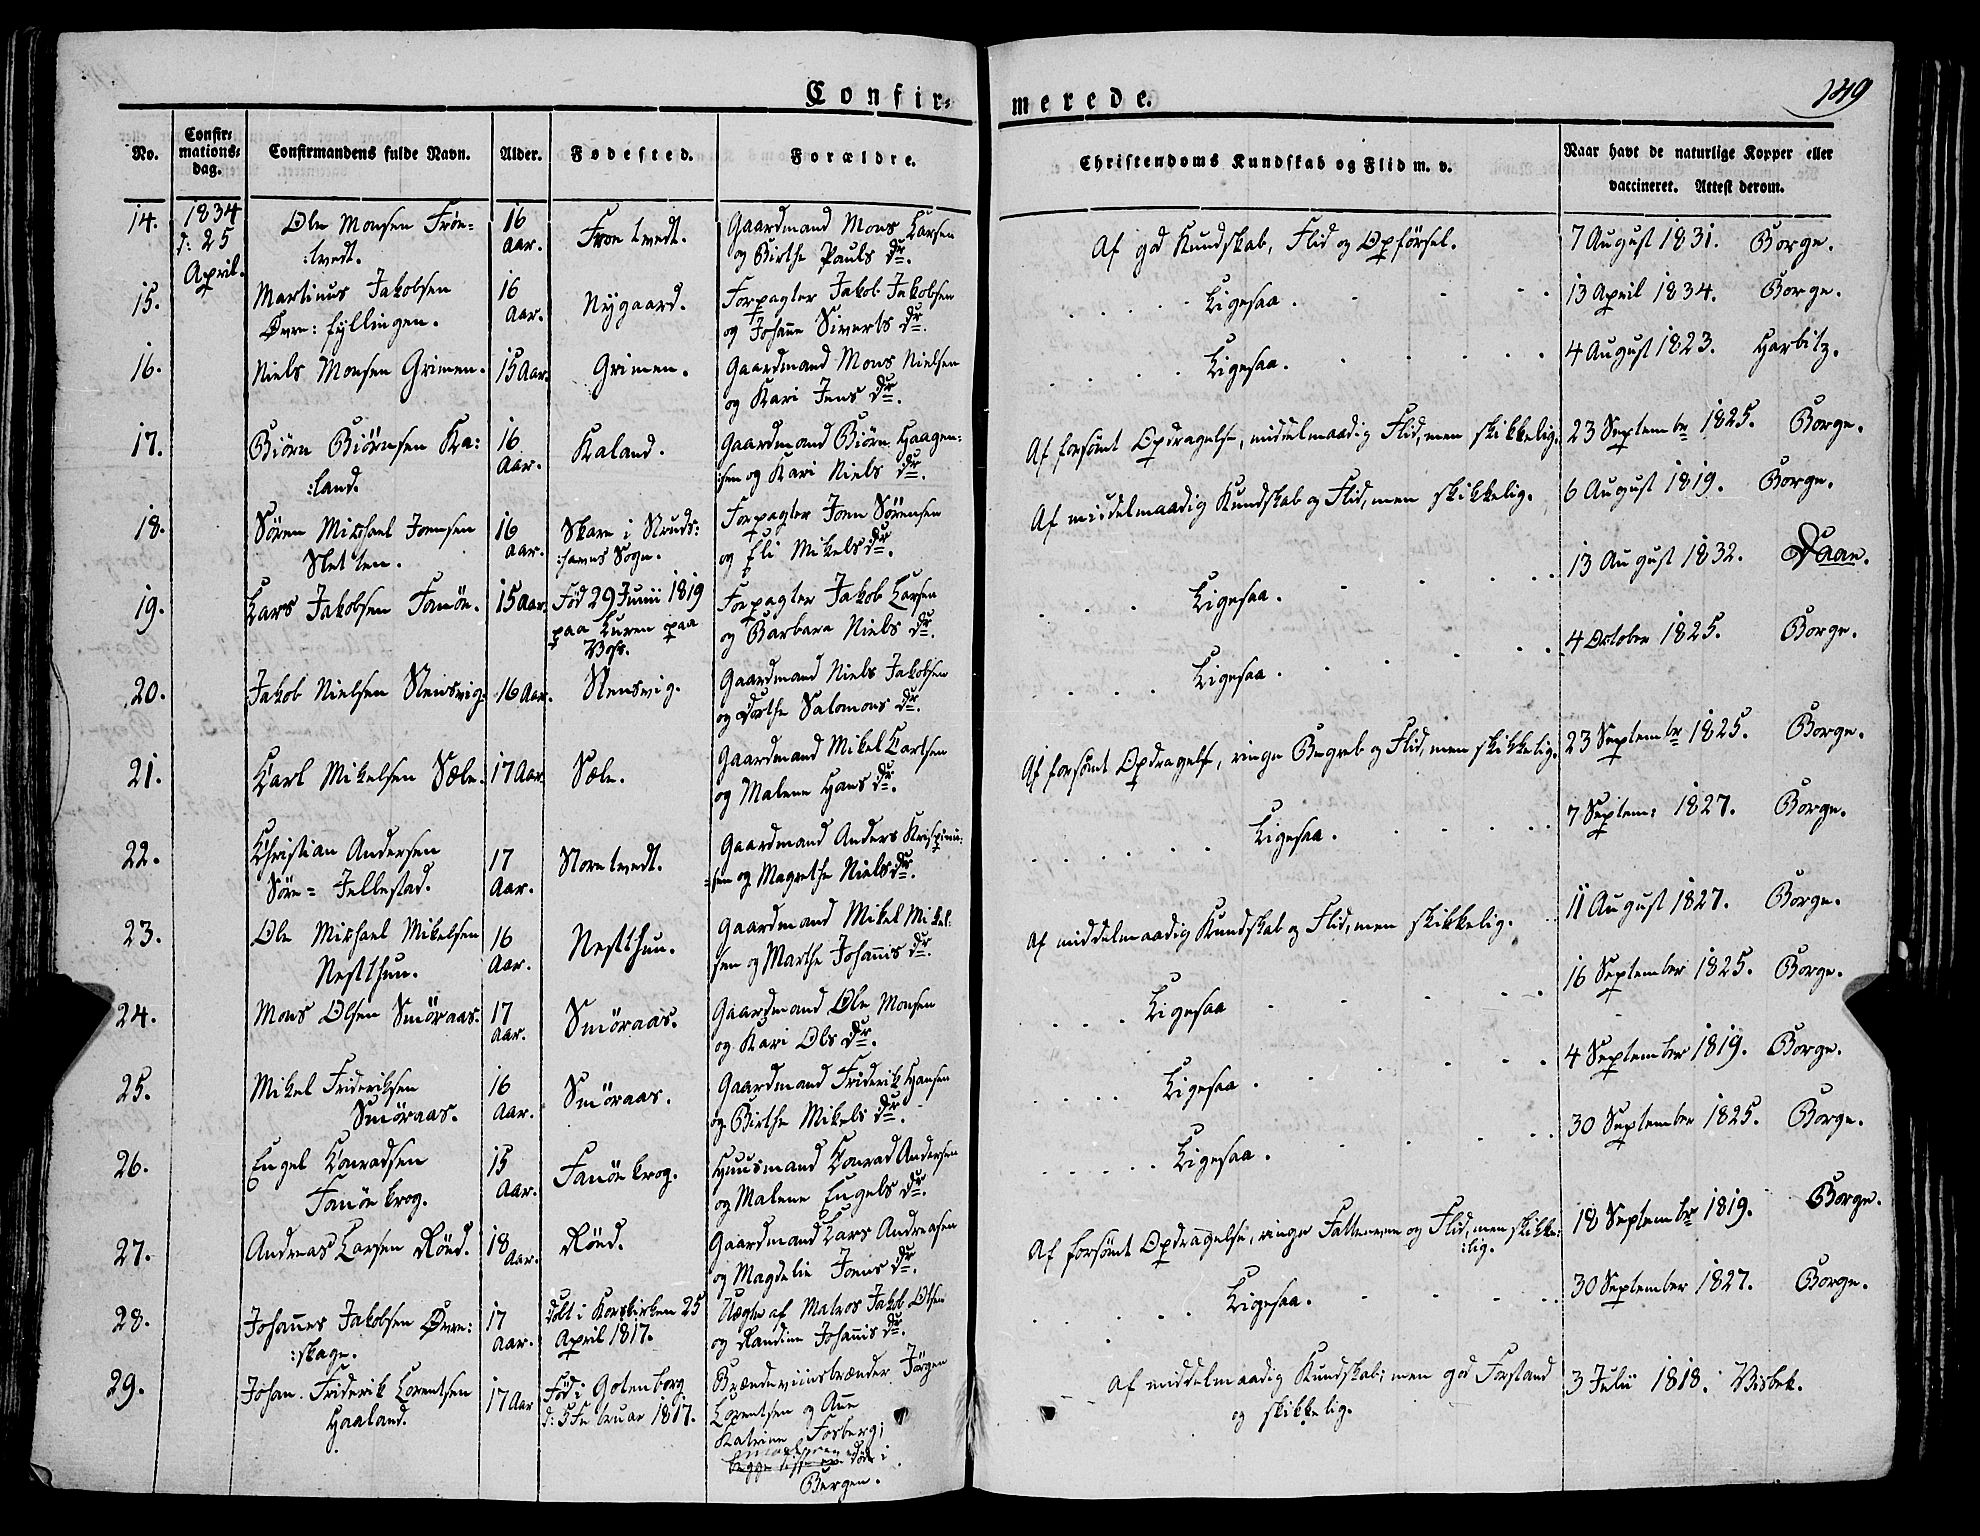 Confir=
merede.
149
No.
Confir=
mations=
dag.
Confirmandens fulde Navn.
Alder.
Fødested.
Forældre.
Christendoms Kundskab og Flid m. v.
Naar havt de naturlige Kopper eller
vaccineret. Attest derom.
14.
1834
d: 25
April.
Ole Monsen Frön=
:tvedt.
16
Aar.
Frontvedt.
Gaardmand Mons Larsen
og Birthe Pauls Dr.
Af god Kundskab, Flid og Opførsel.
7 August 1831. Borge.
15.
Martinus Jakobsen
Øvre: fyllingen.
16
Aar.
Nygaard.
Forpagter Jakob Jakobsen
og Johanne Siverts Dr.
Ligesaa.
13 April 1834. Borge.
16.
Niels Monsen Grimen.
15 Aar.
Grimen.
Gaardmand Mons Nielsen
og Kari Jens Dr.
Ligesaa.
4 August 1823. Harbitz.
17.
Biörn Biörnsen Ka:
:land.
16
Aar.
Kaland.
Gaardmand Biörn Haagen:
:sen og Kari Niels Dr.
Af forsömt Opdragelse, middelmaadig Flid, men skikkelig.
23 Septembr 1825. Borge.
18.
Sören Michael Jonsen
Sletten.
16
Aar.
Skare i Struds:
:havns Sogn.
Forpagter Jonn Sörensen
og Eli Mikels Dr.
Af middelmaadig Kundskab og Flid, men skikkelig.
6 August 1819. Borge.
19.
Lars Jakobsen Fanöe.
15 Aar.
Fød 29 Junii 1819
paa Luren paa
Voss.
Forpagter Jakob Larsen
og Barbara Niels Dr.
Ligesaa.
13 August 1832. Daae.
20.
Jakob Nielsen Stensvig.
16 Aar.
Stensvig.
Gaardmand Niels Jakobsen
og Dorthe Salomons Dr.
Ligesaa.
4 October 1825. Borge.
21.
Karl Mikelsen Sæle.
17 Aar.
Sæle.
Gaardmand Mikel Carlsen
og Malene Hans Dr.
Af forsömt Opdragelse, ringe Begreb og Flid, men skikkelig.
23 Septembr 1825. Borge.
22.
Christian Andersen
Söre= Jellestad.
17
Aar.
Storetvedt.
Gaardmand Anders Krispinu:
=sen og Magrethe Niels Dr.
Ligesaa.
7 Septem: 1827. Borge.
23.
Ole Michael Mikelsen
Nestthun.
16
Aar.
Nestthun.
Gaardmand Mikel Mikel:
sen og Marthe Johannis Dr.
Af middelmaadig Kundskab og Flid, men skikkelig.
11 August 1827. Borge.
24.
Mons Olsen Smöraas.
17
Aar.
Smöraas.
Gaardmand Ole Monsen
og Kari Ols Dr.
Ligesaa
16 September 1825. Borge.
25.
Mikel Frideriksen
Smöraas.
16
Aar.
Smöraas.
Gaardmand Friderik Hansen
og Birthe Mikels Dr.
Ligesaa.
4 September 1819. Borge.
26.
Engel Conradsen
Fanöekrog.
15
Aar.
Fanöekrog.
Huusmand Conrad Andersen
og Malene Engels Dr.
Ligesaa.
30 September 1825. Borge.
27.
Andreas Larsen Rönd.
18
Aar.
Rönd.
Gaardmand Lars Andreasen
og Magdeli Jons Dr.
Af forsömt Opdragelse, ringe Fatteevne og Flid, men skikke:
:lig.
18 Septembr 1819. Borge.
28.
Johannes Jakobsen Øvre:
:skage.
17
Aar.
Döbt i Korskirken 25
April 1817.
Uægte af Matros Jakob Olsen
og Randine Johannis Dr.
Ligesaa.
30 September 1827. Borge.
29.
Johan Friderik Lorentsen
Haaland.
17 Aar
Fød i Gotenborg
d: 5 Februar 1817.
Brændeviinsbrænder Jörgen
Lorentsen og Ane
Katrine Fosberg;
begge døde i
Bergen.
Af middelmaadig Kundskab; men god Forstand
og skikkelig.
3 Julii 1818. Visbek.